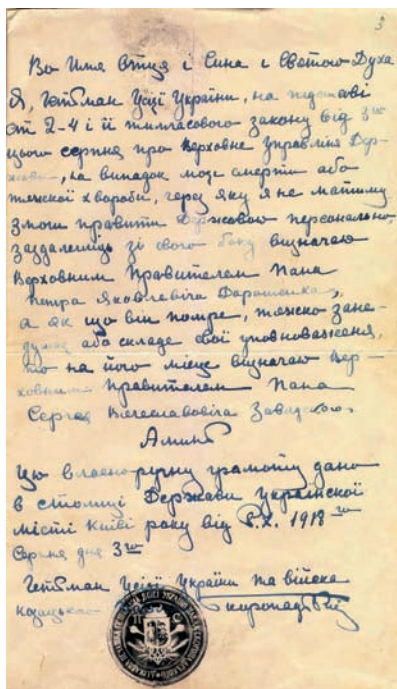 3
Во Имя Отця і Сина і Святого Духа
Я, Гетьман Усієї України, на підставі
ст 2-4 і її тимчасового закону від 3го
цього серпня про верховне управління Дер-
жави, на випадок моєї смерти або
тяжкої хвороби, через яку я не матиму
змоги правити Державою персонально,
заздалегідь зі свого боку визначаю
Верховним Правителем Пана
Петра Яковлевіча Дорошенка,
а як що він помре, тяжко зане-
дужає або складе свої уповноваження,
то на його місце визначаю Вер-
ховним Правителем Пана
Сергея Вячеславовіча Завадского.
Аминь
Цю власноручну грамоту дано
в столиці Держави Української
місті Київі року від Р.Х. 1918го
Серпня дня 3го
Гетьман Усієї України та війска
Козацького Скоропадський